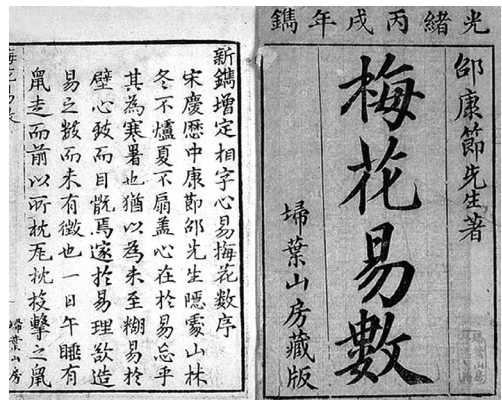 光緒丙戌年鐫
邵康節先生著
梅花易數
埽葉山房藏版
新鐫增定相字心易梅花數序
宋慶歷中康節邵先生隱處山林
冬不爐夏不扇蓋心在於易忘乎
其為寒暑也猶以為未至糊易於
壁心致而目翫焉邃於易理欲造
易之數而未有徵也一日午睡有
鼠走而前以所枕瓦枕投擊之鼠
埽葉山房